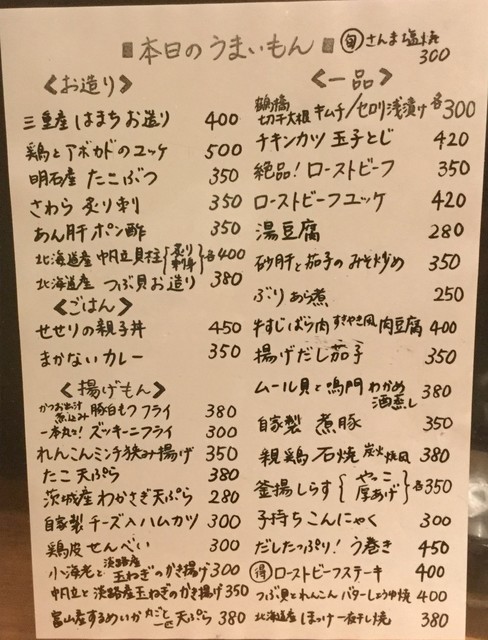 本日のうまいもん
旬 さんま塩焼 300
<お造り>
三重産 はまちお造り 400
鶏とアボカドのユッケ 500
明石産 たこぶつ 350
さわら 炙り刺 350
あん肝ポン酢 350
北海道産 帆立貝柱{炙り 刺身}各400
北海道産 つぶ貝お造り 380
<ごはん>
せせりの親子丼 450
まかないカレー 350
<揚げもん>
かつお出汁煮込み 豚白もつフライ 380
一本丸ごと!ズッキーニフライ 300
れんこんミンチ挟み揚げ 350
たこ天ぷら 380
茨城産わかさぎ天ぷら 280
自家製チーズ入ハムカツ 300
鶏皮せんべい 300
小海老と淡路産玉ねぎのかき揚げ 300
帆立と淡路産玉ねぎのかき揚げ 350
富山産するめいか丸ごと一匹天ぷら 380
<一品>
鶴橋 切干大根キムチ/セロリ浅漬け 各300
チキンカツ玉子とじ 420
絶品!ローストビーフ 350
ローストビーフユッケ 420
湯豆腐 280
砂肝と茄子のみそ炒め 350
ぶりあら煮 250
牛すじばら肉すきやき風肉豆腐 400
揚げだし茄子 350
ムール貝と鳴門わかめ酒蒸し 380
自家製 煮豚 350
親鶏石焼 炭火焼風 380
釜揚しらす{やっこ 厚あげ}各350
子持ちこんにゃく 300
だしたっぷり!う巻き 450
得 ローストビーフステーキ 400
つぶ貝とれんこんバターしょうゆ焼 400
北海道産 ほっけ一夜干し焼 380